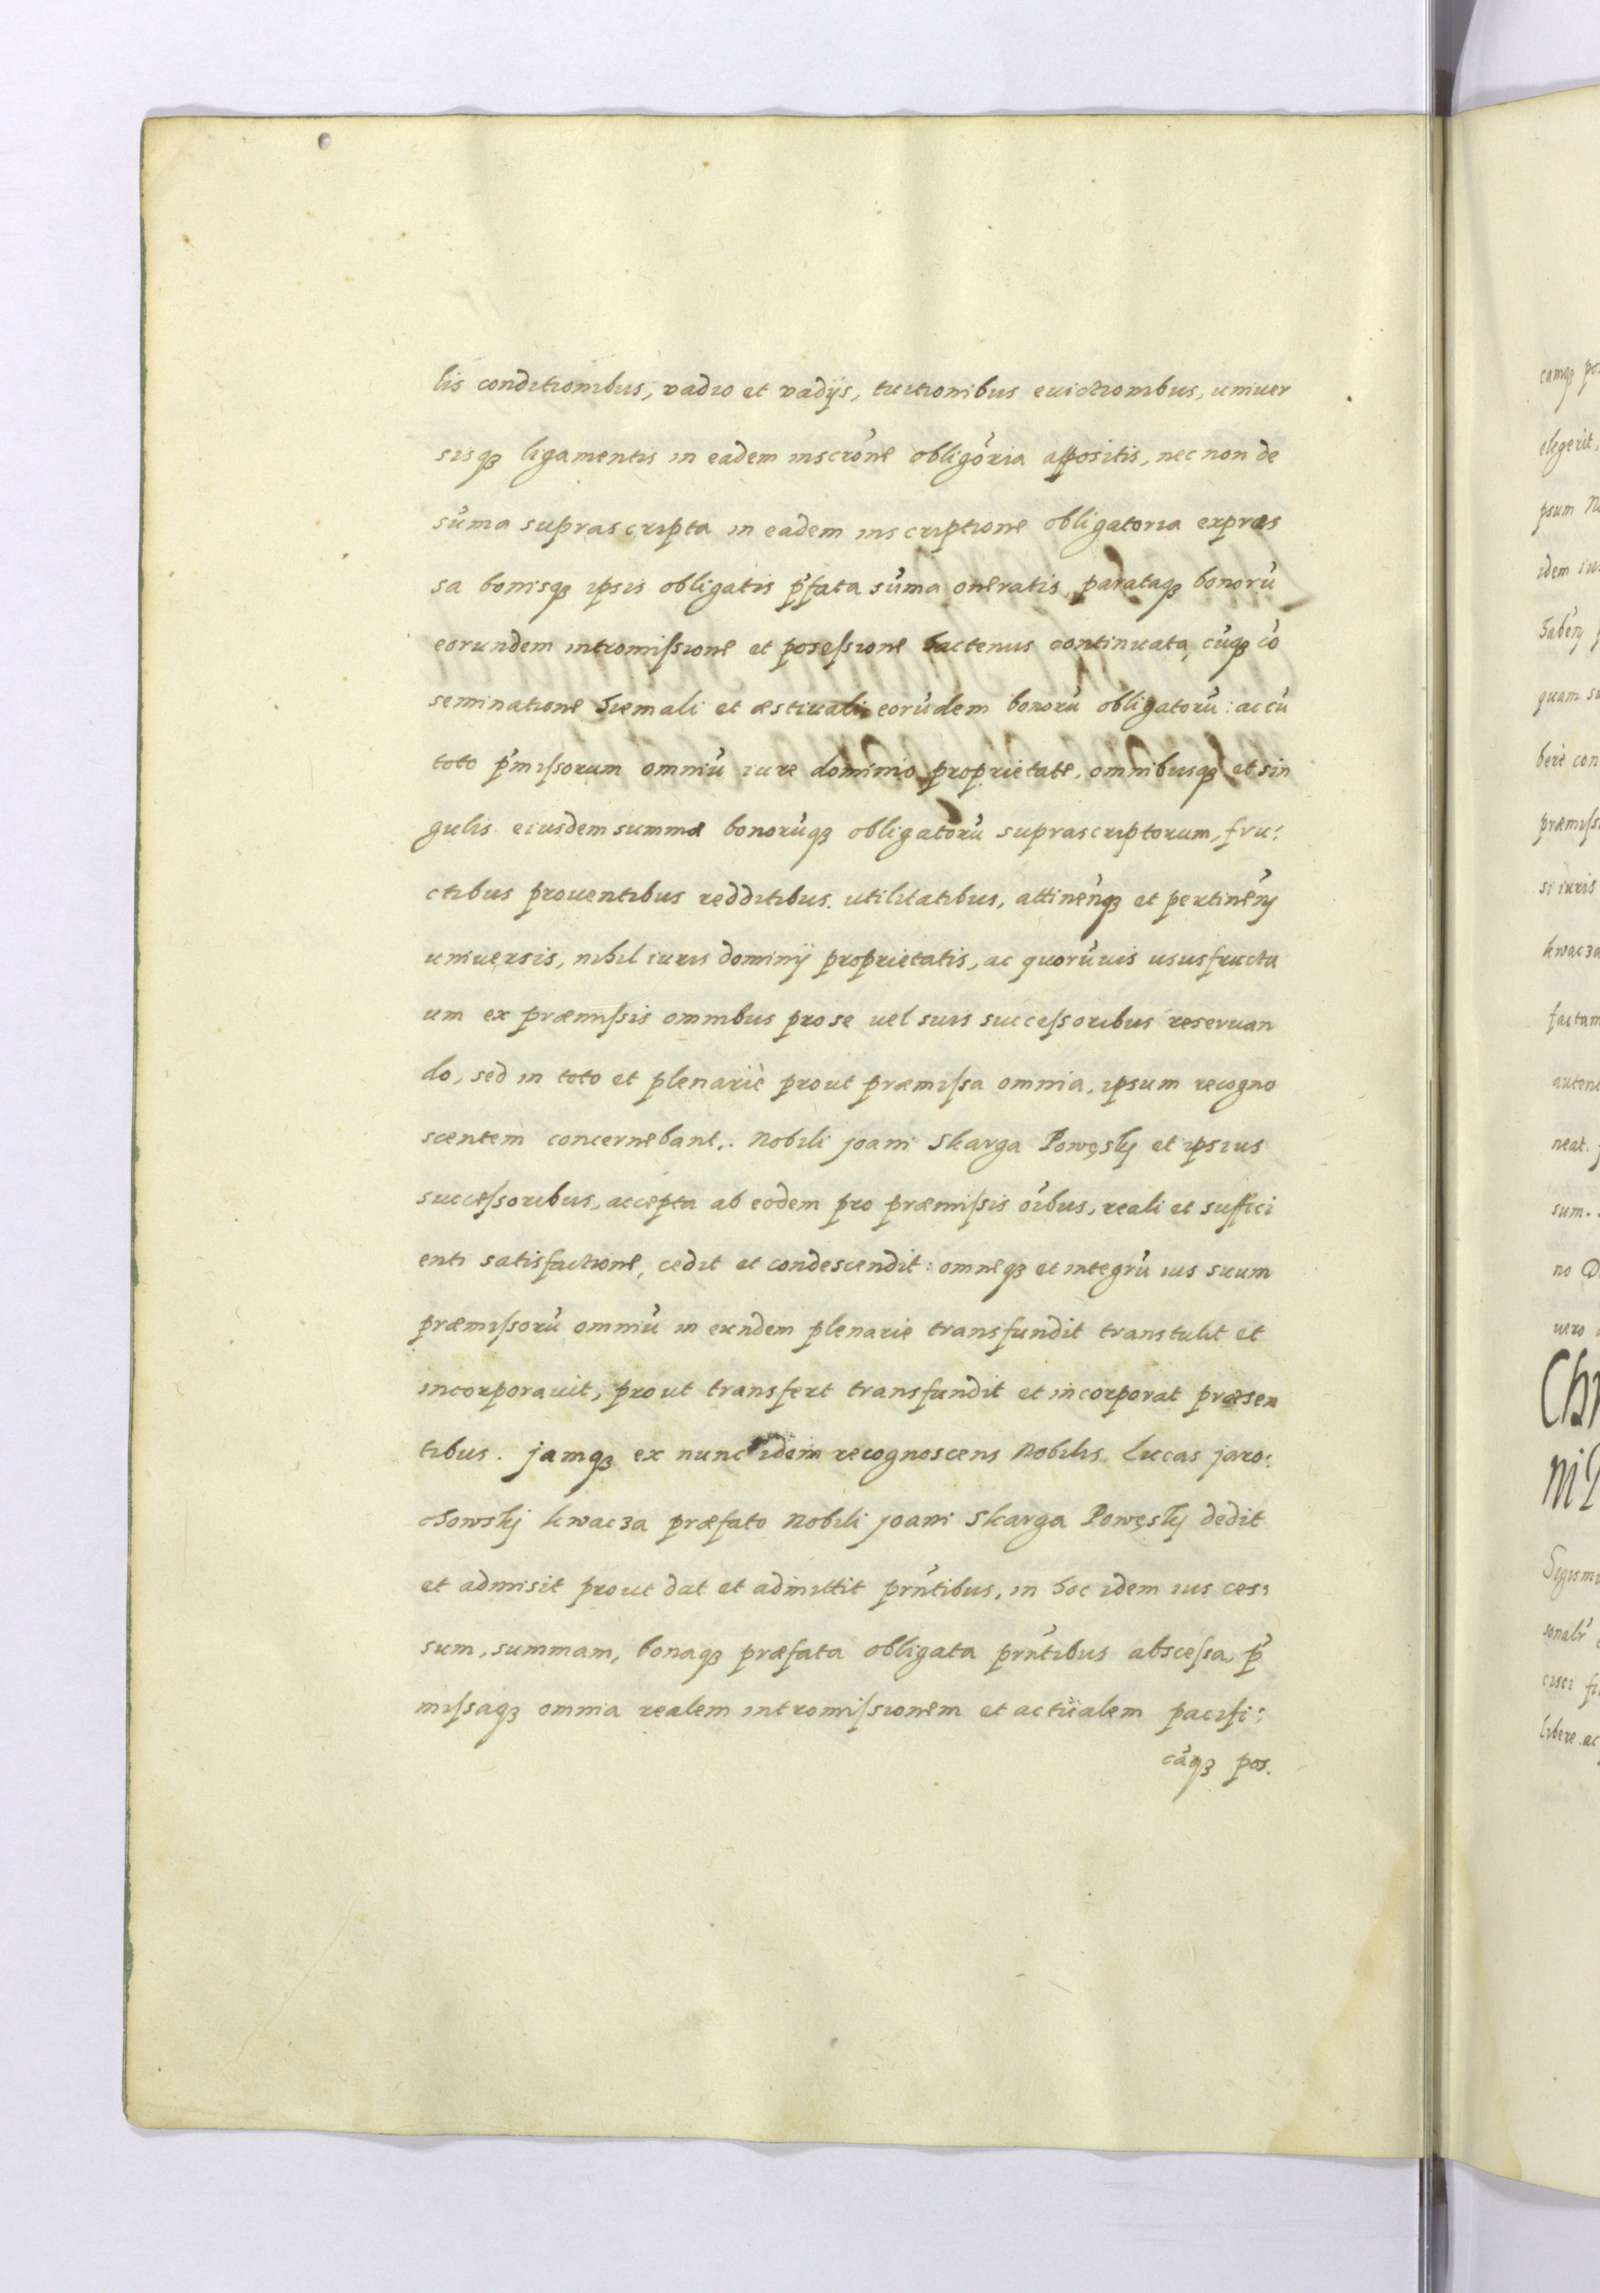 lis conditionibus, vadio et vadijs, tuitionibus euictionibus, uniuer
sisqꜣ ligamentis in eadem inscrõne obligõria appositis, nec non de
sũma suprascripta in eadem inscriptione obligatoria expræs
sa bonisqꜣ ipsis obligatis p̃fata sũma oneratis, parataqꜣ bonorũ
eorundem intromiſsione et poseſsione hactenus continuata, cũqꜣ cõ
seminatione hiemali et æstiuali eorũdem bonorũ obligatorũ: ac cũ
toto p̃miſsorum omniũ iure dominio proprietate, omnibusqꜣ et sin
gulis eiusdem summæ bonorũqꜣ obligatorũ suprascriptorum, fru:
ctibus prouentibus redditibus utilitatibus, attineñqꜣ et pertineñ
uniuersis, nihil iuris dominÿ proprietatis, ac quorũuis ususfructu
um ex præmiſsis omnibus pro se uel suis succeſsoribus reseruan
do, sed in toto et plenariè prout præmiſsa omnia, ipsum recogno
scentem concernebant,. Nobili joani Skarga Powęskj et ipsius
succeſsoribus, accepta ab eodem pro præmiſsis oĩbus, reali et suffici
enti satisfactione, cedit et condescendit: omneqꜣ et integrũ ius suum
præmiſsorũ omniũ in eundem plenarie transfundit transtulit et
incorporauit, prout transfert transfundit et incorporat præsen
tibus. jamqꜣ ex nunc idem recognoscens Nobilis Lucas jaro:
chowskj kwacza præfato Nobili joani Skarga Powęskj dedit
et admisit prout dat et admittit prñtibus, in hoc idem ius ces:
sum, summam, bonaqꜣ præfata obligata prñtibus absceſsa, p̃
miſsaqꜣ omnia realem intromiſsionem et actüalem pacifi:
cãqꜣ pos.